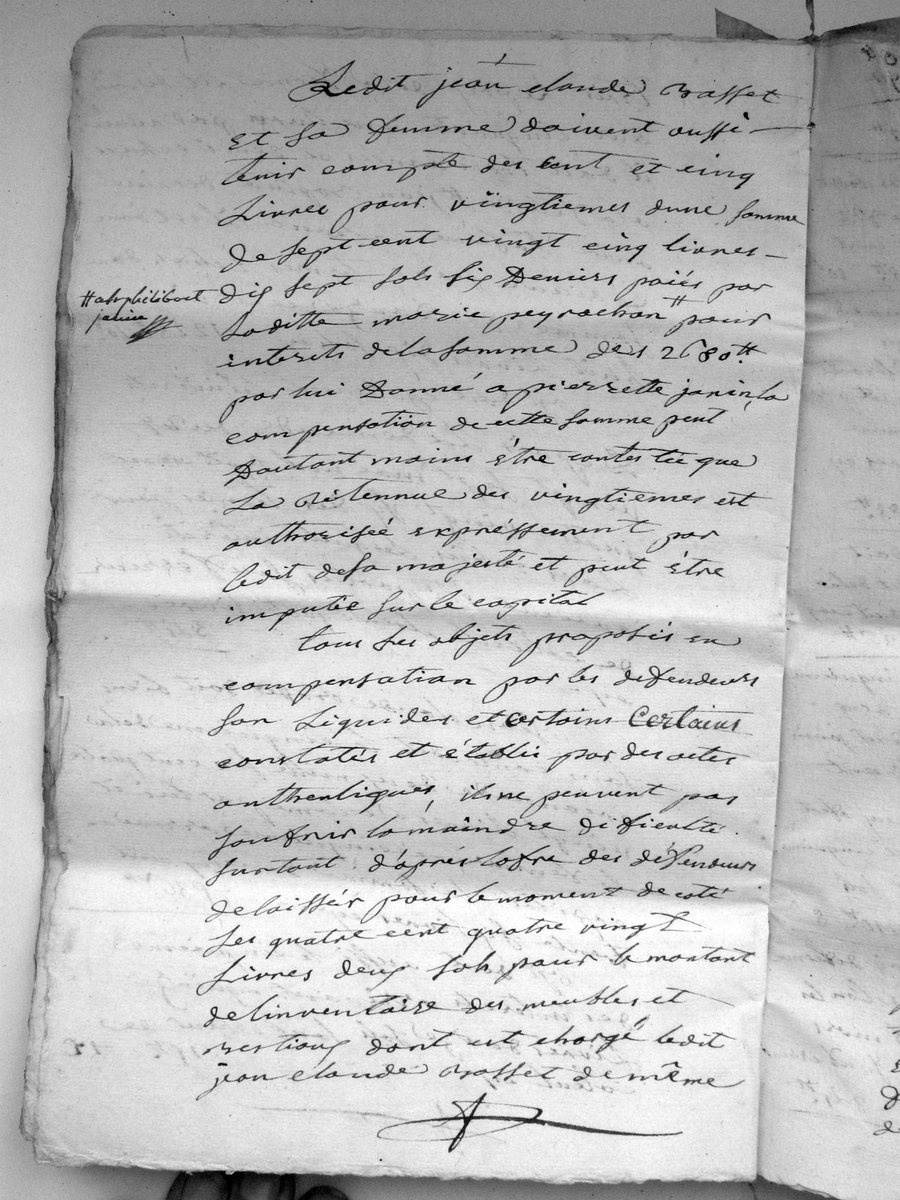 Ledit jean claude Basset
et sa femme doivent aussi
tenir compte des cent et cinq
Livres pour vingtiemes dune somme
de sept cent vingt cinq livres
dix sept sols six Deniers paiés par
Laditte marie peyrachon # pour
# et philibert
janin
interets de la somme des 2680 ₶.
par lui Donné a pierrette janin, la
compensation de cette somme peut
Dautant moins être contestée que
La retennue des vingtiemes est
authorisée expréssement par
ledit de sa majesté et peut être
imputée sur le capital
tous les objets proposés en
compensation par les defendeurs
son Liquides et certains Certains
constatés et établis par des actes
authentiques, ils ne peuvent pas
soufrir la moindre dificulté
surtout d'aprés lofre des défendeurs
de laissér pour le moment de coté
Les quatre cent quatre vingt
Livres deux sols pour le montant
de linventaire des meubles et
bestiaux dont est chargé ledit
jean claude Basset de même